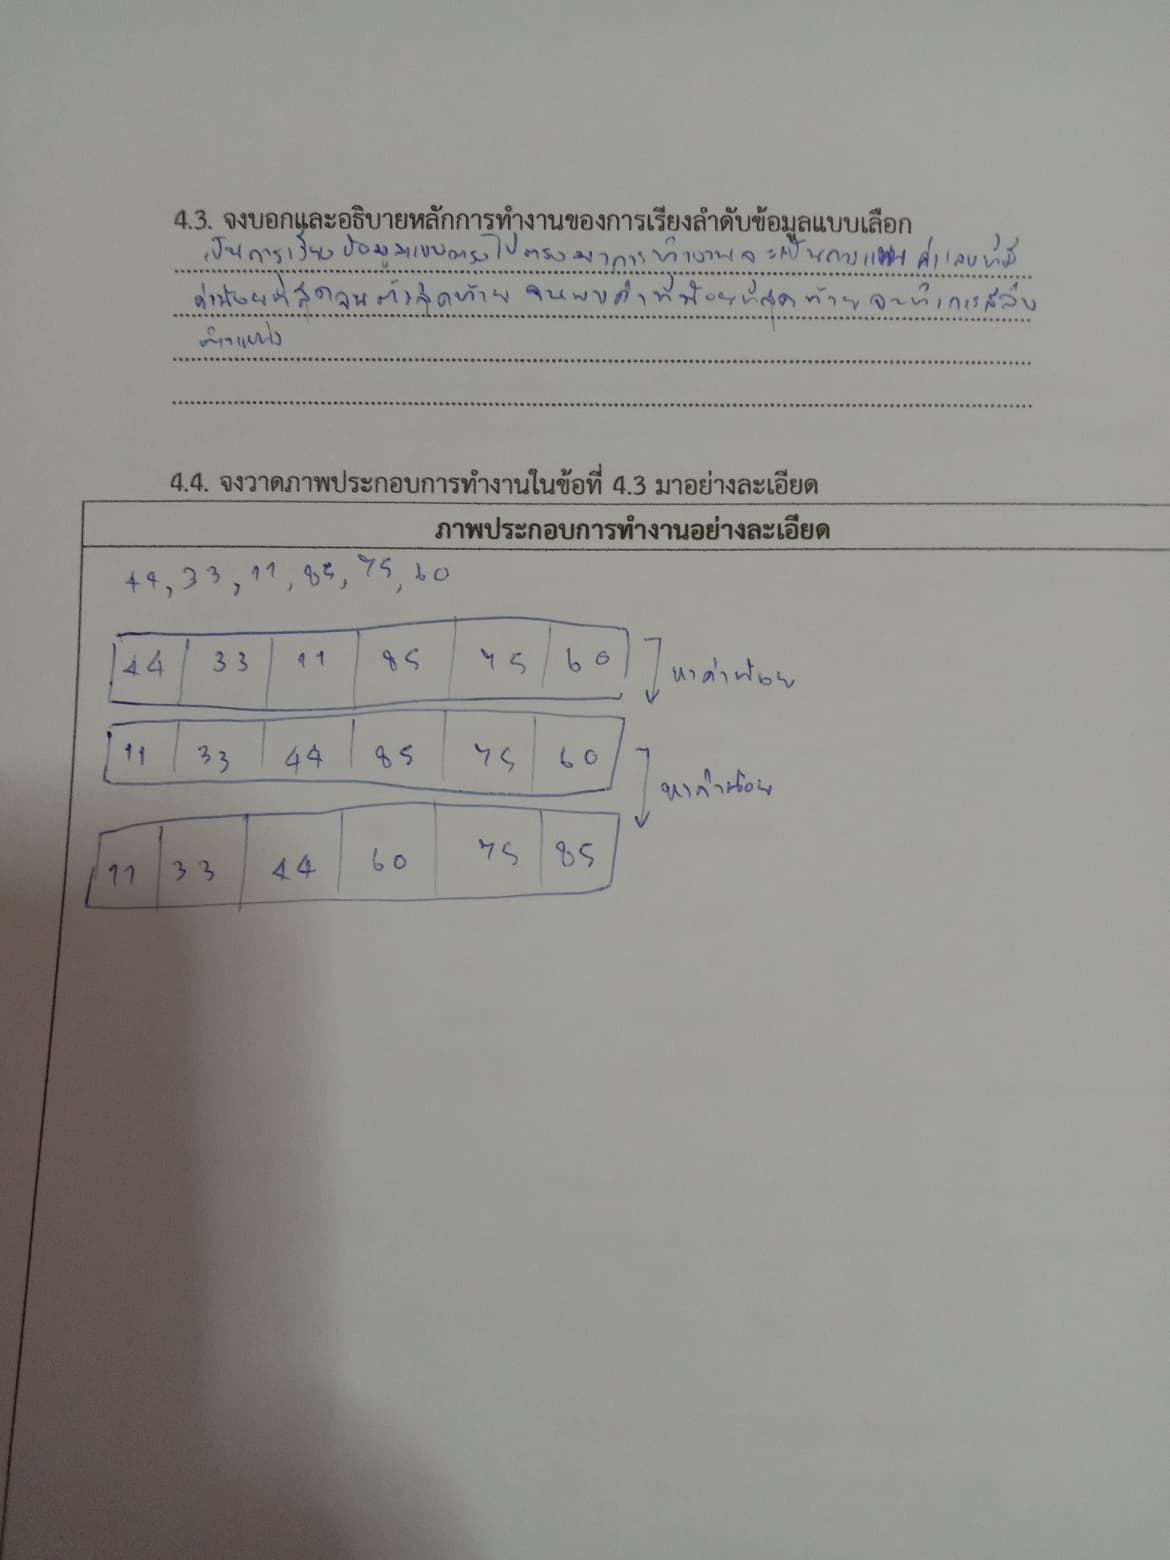 4.3. จงบอกและอธิบายหลักการทำงานของการเรียงลำดับข้อมูลแบบเลือก
เป็นการเรียงข้อมูลแบบตรงไปตรงมาการทำงานจะเป็นการแสกนตัวเลขที่มี
ค่าน้อยที่สุดจนตัวสุดท้าย จนพบค่าที่น้อยที่สุดท้าย จะทำการสลับ
ตำแหน่ง
4.4. จงวาดภาพประกอบการทำงานในข้อที่ 4.3 มาอย่างละเอียด
ภาพประกอบการทำงานอย่างละเอียด
44, 33, 11, 85, 75, 60
44 33 11 85 75 60 หาค่าน้อย
11 33 44 85 75 60 หาค่าน้อย
11 33 44 60 75 85